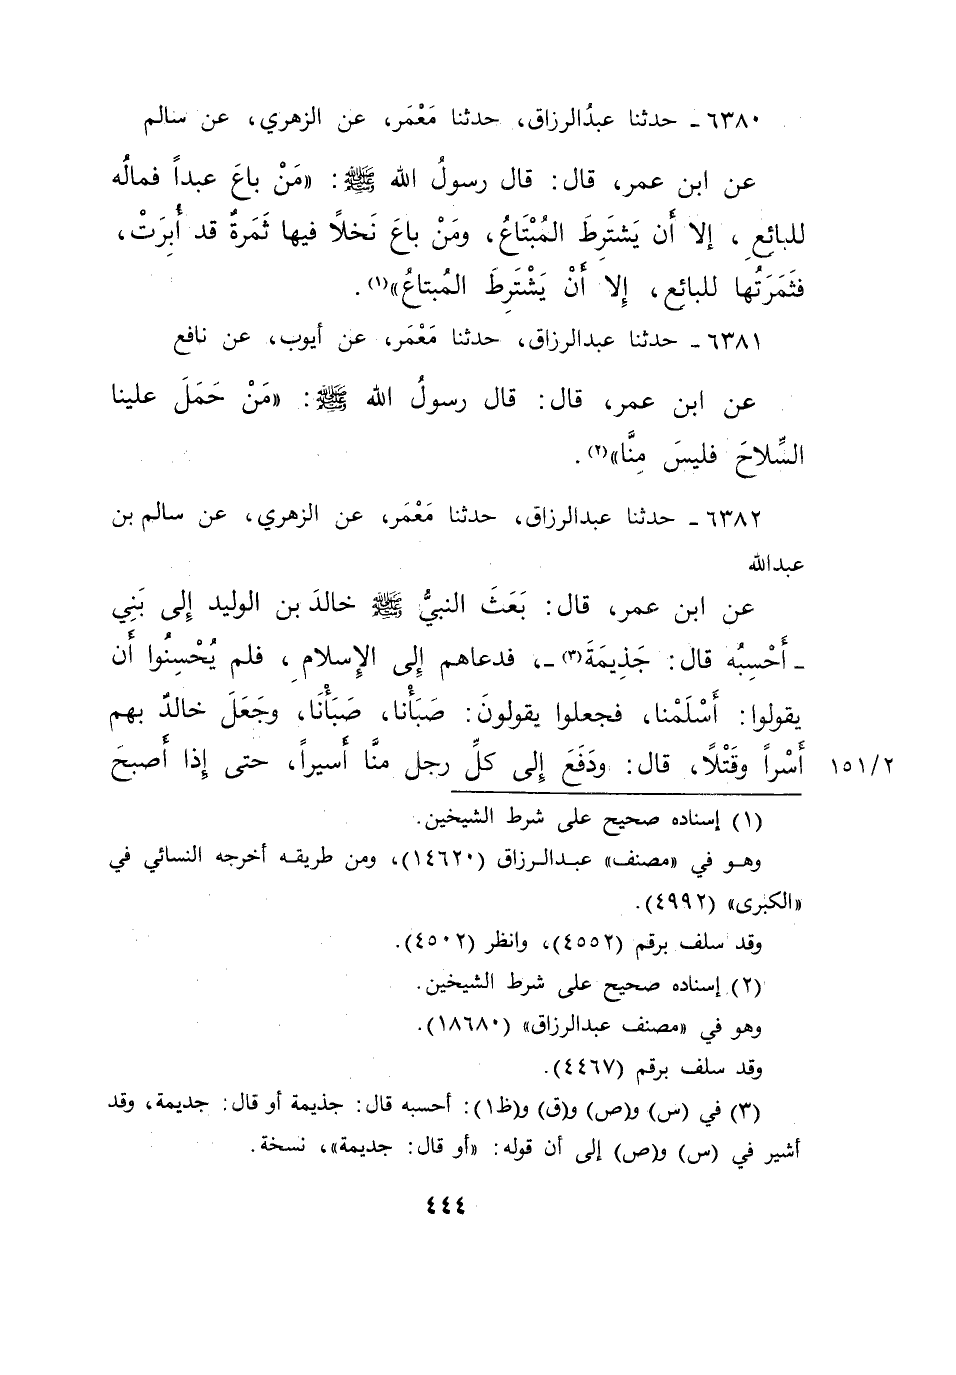 ٦٣٨٠ـ حدثنا عبدُالرزاق، حدثنا مَعْمَر، عن الزهري، عن سالم
عن ابن عمر، قال: قال رسولُ الله ﷺ: «مَنْ باعَ عبداً فمالُه
للبائعِ، إلا أَن يَشتَرِطَ المُبْتَاعُ، ومَنْ باعَ نَخلاً فيها ثَمَرةٌ قد أُبِرَتْ،
فثَمَرَتُها للبائعِ، إلا أَنْ يَشْتَرِطَ المُبتاعُ»(١).
٦٣٨١ـ حدثنا عبدالرزاق، حدثنا مَعْمَر، عن أيوب، عن نافع
عن ابن عمر، قال: قال رسولُ الله ﷺ: «مَنْ حَمَلَ علينا
السِّلاحَ فليسَ مِنَّا»(٢).
٦٣٨٢ـ حدثنا عبدالرزاق، حدثنا مَعْمَر، عن الزهري، عن سالم بن
عبدالله
عن ابن عمر، قال: بَعَثَ النبيُّ ﷺ خالدَ بن الوليد إلى بَنِي
ـ أَحْسِبُه قال: جَذِيمَةَ(٣)ـ، فدعاهم إلى الإسلامِ، فلم يُحْسِنُوا أَن
يقولوا: أَسْلَمْنا، فجعلوا يقولونَ: صَبَأْنا، صَبَأْنَا، وجَعَلَ خالدٌ بهم
أَسْراً وقَتْلًا، قال: ودَفَعَ إلى كلِّ رجل منَّا أَسيراً، حتى إذا أَصبحَ ١٥١/٢
(١) إسناده صحيح على شرط الشيخين.
وهو في «مصنف» عبدالرزاق (١٤٦٢٠)، ومن طريقه أخرجه النسائي في
«الكبرى» (٤٩٩٢).
وقد سلف برقم (٤٥٥٢)، وانظر (٤٥٠٢).
(٢) إسناده صحيح على شرط الشيخين.
وهو في «مصنف عبدالرزاق» (١٨٦٨٠).
وقد سلف برقم (٤٤٦٧).
(٣) في (س) و(ص) و(ق) و(ظ١): أحسبه قال: جذيمة أو قال: جديمة، وقد
أشير في (س) و(ص) إلى أن قوله: «أو قال: جديمة»، نسخة.
٤٤٤